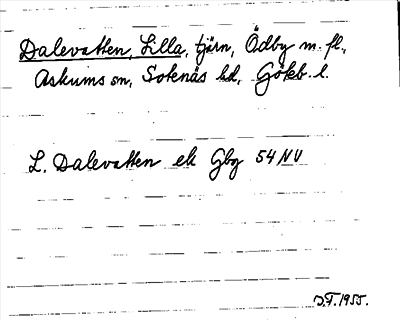 Dalevatten, Lilla, tjärn, Ödby m. fl.,
Askums sn, Sotenäs hd, Göteb. l.
L. Dalevatten ek Gbg 54 NV
D.F. 1955.